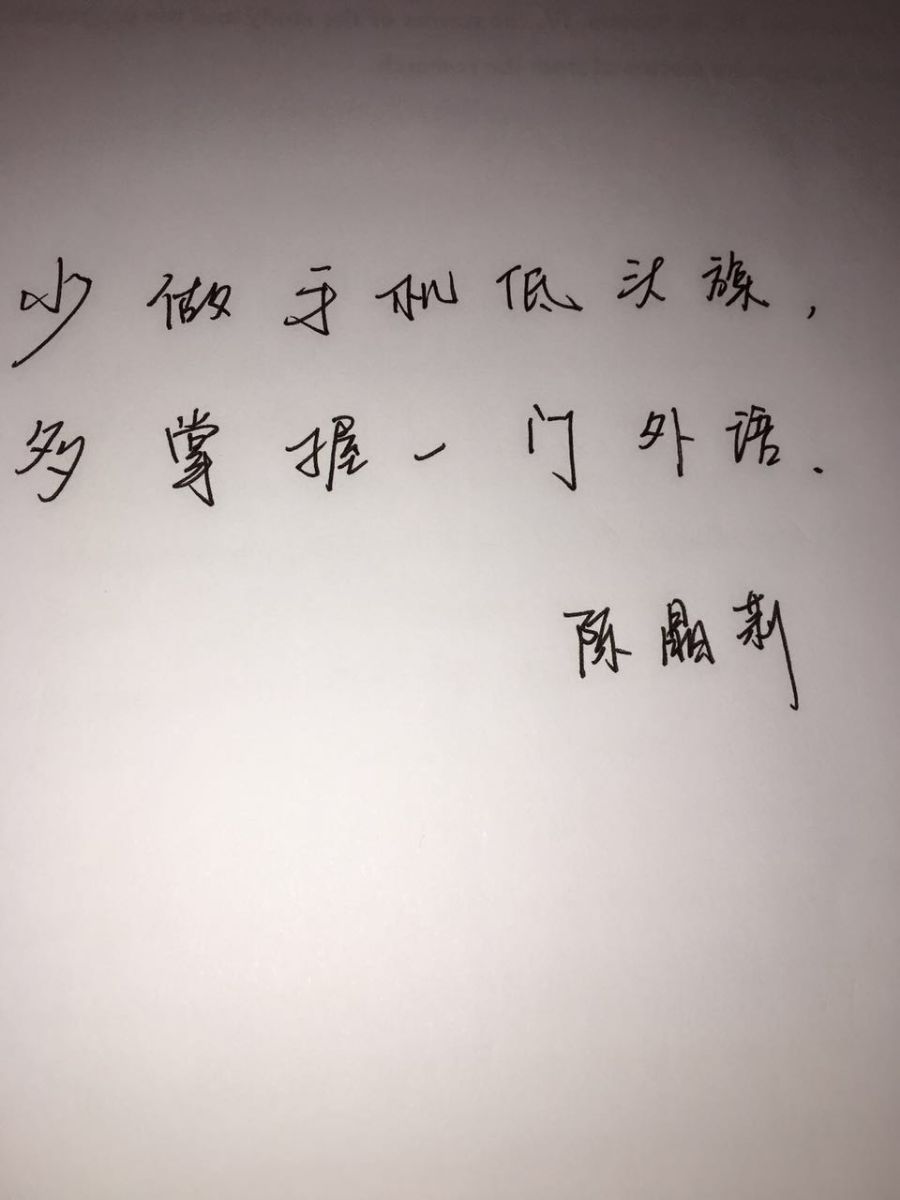 少做手机低头族，
多掌握一门外语.
陈晶莉